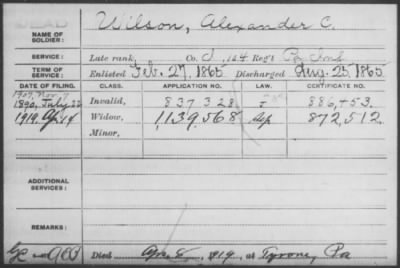 DEAD
NAME OF SOLDIER: Wilson, Alexander C.
SERVICE: Late rank, Co. I, 124 Reg't Pa Inf.
TERM OF SERVICE: Enlisted Feb. 27, 1865 Discharged Aug. 25, 1865
DATE OF FILING. CLASS. APPLICATION NO. LAW. CERTIFICATE NO.
1907, Nov. 7
1890, July 22 Invalid, 837328 886,453.
1919 Ap 14 Widow, 1,139,568 872,512.
Minor,
ADDITIONAL SERVICES:
REMARKS:
Died 1919, at Tyrone, Pa